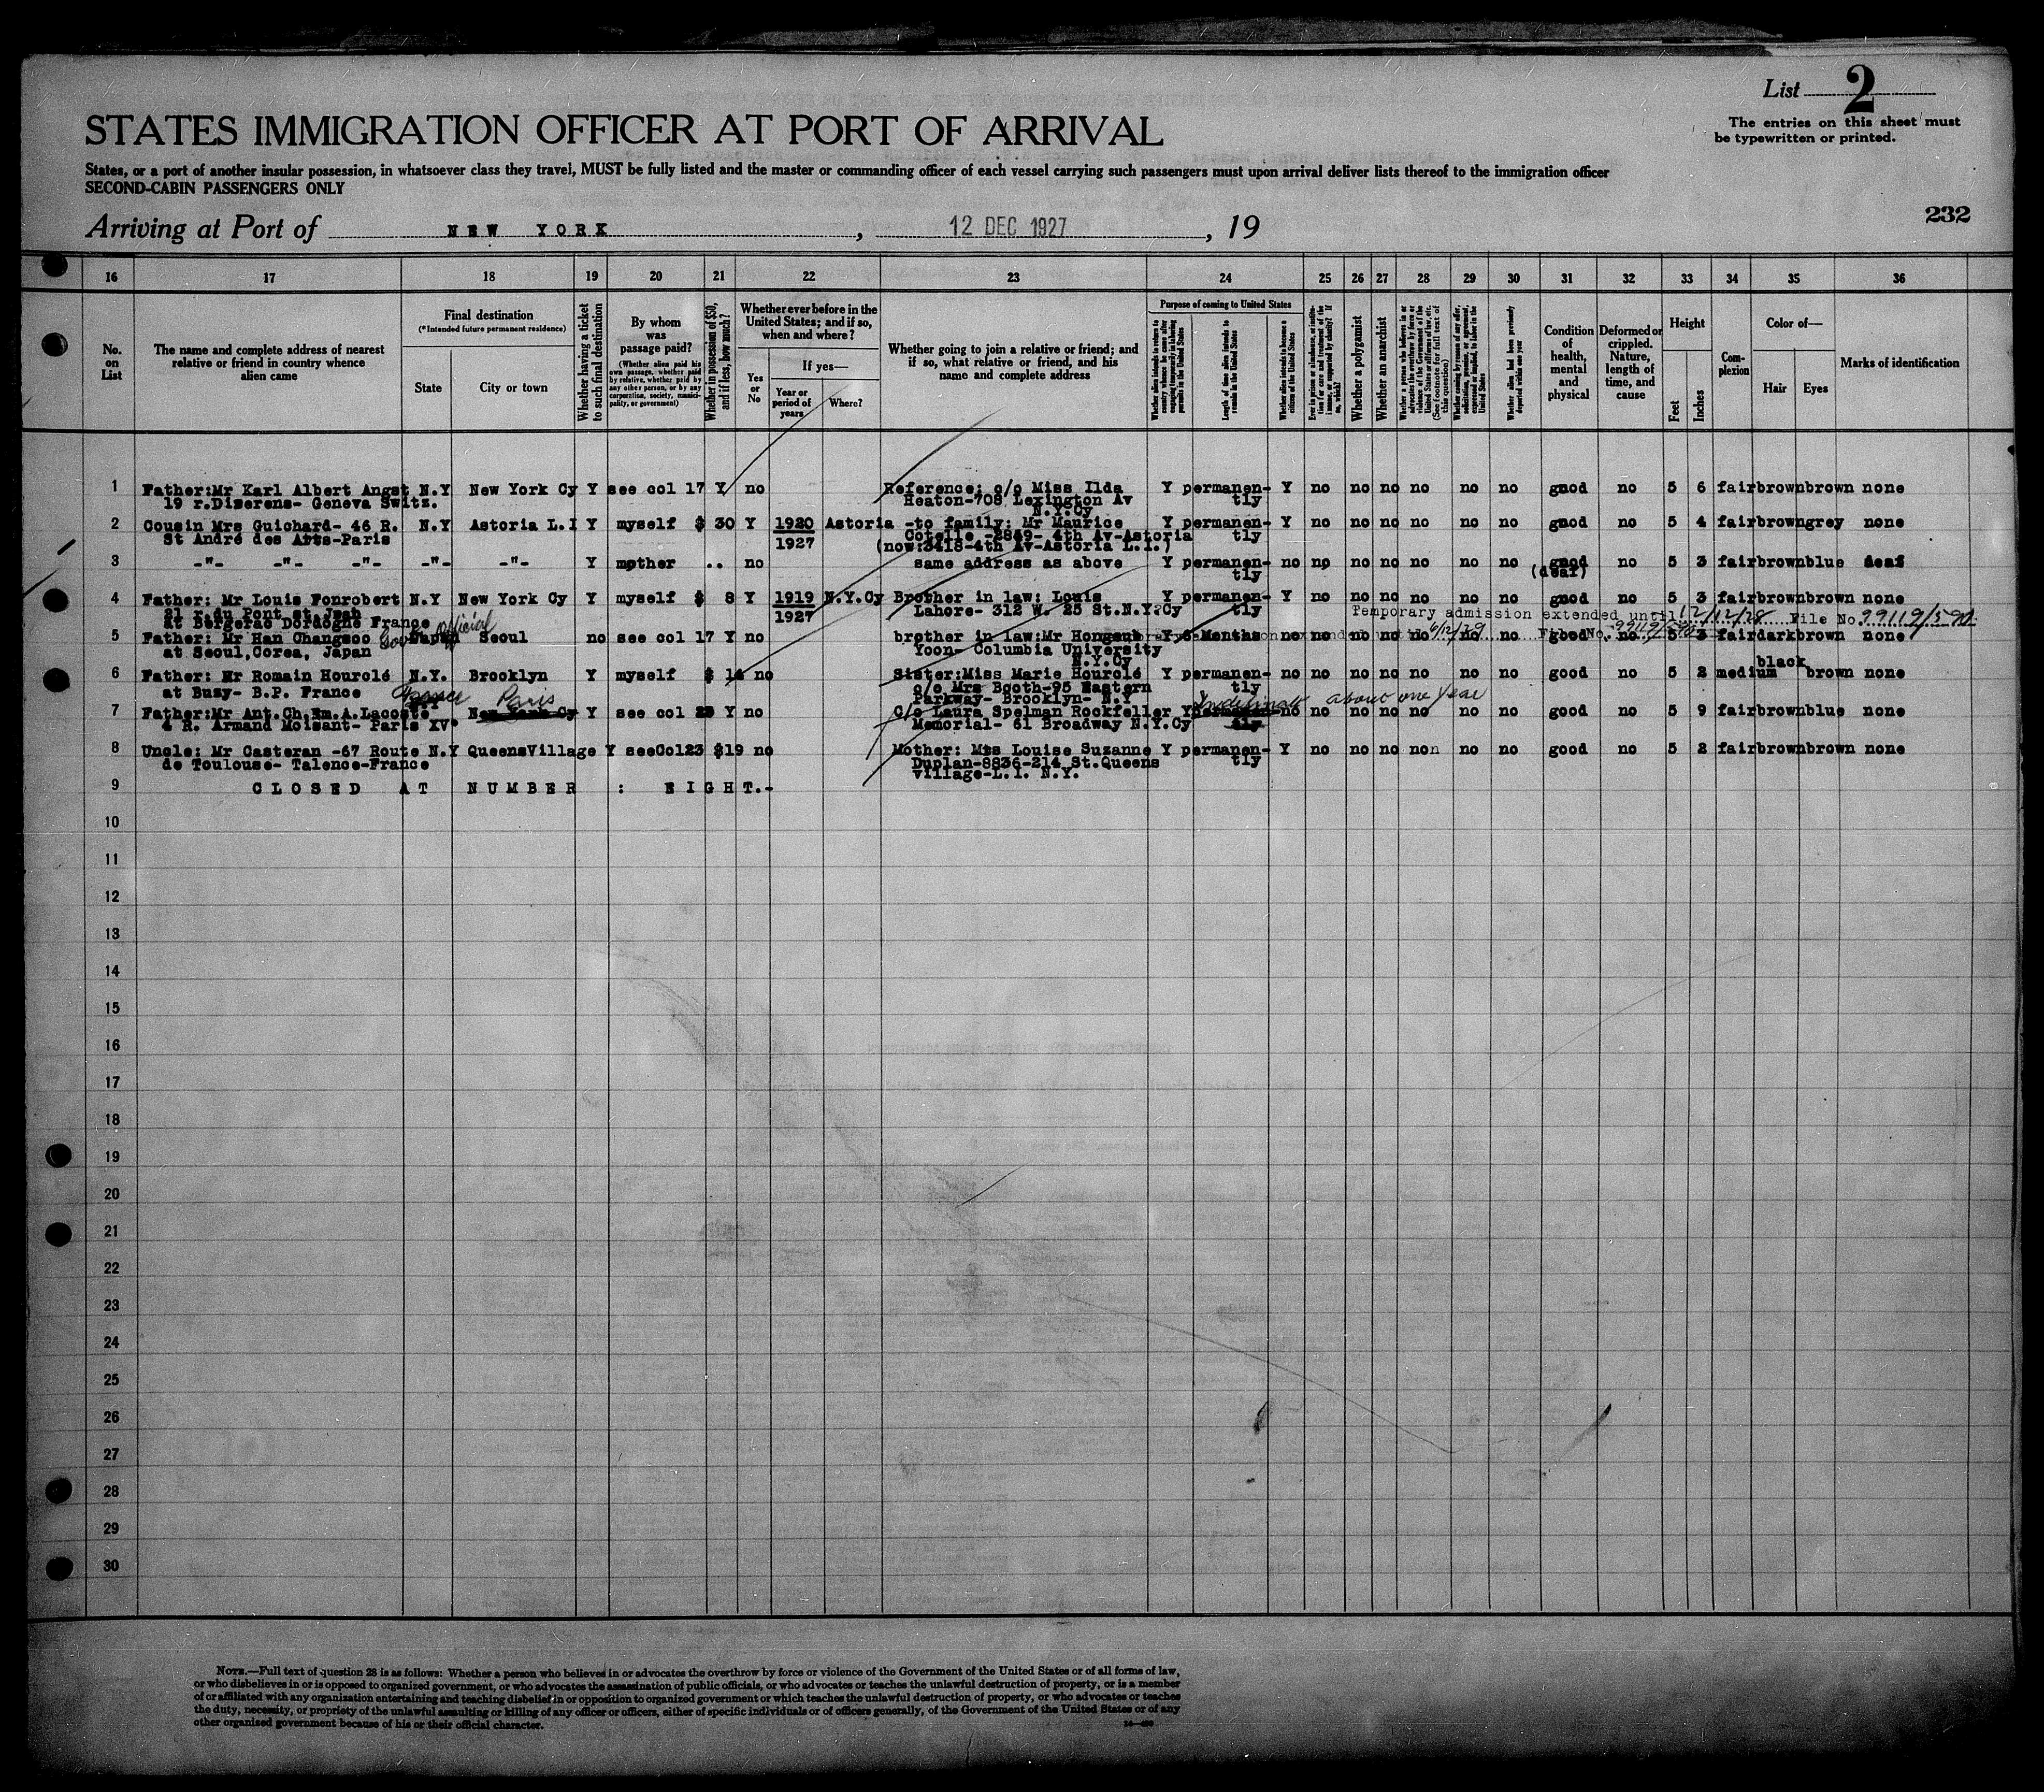 List 2
The entries on this sheet must
be typewritten or printed.
STATES IMMIGRATION OFFICER AT PORT OF ARRIVAL
States, or a port of another insular possession, in whatsoever class they travel, MUST be fully listed and the master or commanding officer of each vessel carrying such passengers must upon arrival deliver lists thereof to the immigration officer
SECOND-CABIN PASSENGERS ONLY
232
Arriving at Port of NEW YORK, 12 DEC 1927, 19
16 17 18 19 20 21 22 23 24 25 26 27 28 29 30 31 32 33 34 35 36
No. on List
The name and complete address of nearest
relative or friend in country whence
alien came
Final destination
(*Intended future permanent residence)
State
City or town
Whether having a ticket
to such final destination
By whom
was
passage paid?
(Whether alien paid his
own passage, whether paid
by relative, whether paid by
any other person, or by any
corporation, society, munici-
pality, or government)
Whether in possession of $50,
and if less, how much?
Whether ever before in the
United States; and if so,
when and where?
Yes
or
No
If yes—
Year or
period of
years
Where?
Whether going to join a relative or friend; and
if so, what relative or friend, and his
name and complete address
Purpose of coming to United States
Whether alien intends to return to
country whence he came after
engaging temporarily in laboring
pursuits in the United States
Length of time alien intends to
remain in the United States
Whether alien intends to become a
citizen of the United States
Ever in prison or almshouse, or institu-
tion for care and treatment of the
insane, or supported by charity? If
so, which?
Whether a polygamist
Whether an anarchist
Whether a person who believes in or
advocates the overthrow by force or
violence of the Government of the
United States or all forms of law, etc.
(See footnote for full text of
this question)
Whether coming by reason of any offer,
solicitation, promise, or agreement,
expressed or implied, to labor in the
United States
Whether alien had been previously
deported within one year
Condition
of
health,
mental
and
physical
Deformed or
crippled.
Nature,
length of
time, and
cause
Height
Feet
Inches
Com-
plexion
Color of—
Hair
Eyes
Marks of identification
1 Father:Mr Karl Albert Angst N.Y New York Cy Y see col 17 Y no Reference: c/o Miss Ilda Y permanen- Y no no no no no no good no 5 6 fair brown brown none
19 r.Diserens- Geneva Switz. Heaton-708 Lexington Av tly
N.Y.Cy
2 Cousin Mrs Guichard- 46 R. N.Y Astoria L.I Y myself $ 30 Y 1920 Astoria -to family: Mr Maurice Y permanen- Y no no no no no no good no 5 4 fair brown grey none
St André des Arts-Paris 1927 Cotelle -2849- 4th Av-Astoria tly
(now:3418-4th Av-Astoria L.I.)
3 -"- -"- -"- -"- -"- Y mother .. no same address as above Y permanen- no no no no no no no good no 5 3 fair brown blue deaf
tly (deaf)
4 Father: Mr Louis Fonrobert N.Y New York Cy Y myself $ 8 Y 1919 N.Y.Cy Brother in law: Louis Y permanen- Y no no no no no no good no 5 3 fair brown brown none
21 r.du Pont st Jean 1927 Lahore- 312 W. 25 St.N.Y.Cy tly Temporary admission extended until 12/12/28 File No. 99119/590
at Bergerac Dordogne France
5 Father: Mr Han Changsoo Gov Official Japan Seoul no see col 17 Y no brother in law:Mr Hongsub Y 6 Months no no no no no no no good no 5 3 fair dark brown none
at Seoul,Corea, Japan Yoon- Columbia University 6/12/29
N.Y.Cy
6 Father: Mr Romain Hourclé N.Y. Brooklyn Y myself $ 14 no Sister:Miss Marie Hourclé Y permanen- no no no no no no no good no 5 2 medium black brown none
at Busy- B.P. France c/o Mrs Booth-95 Eastern tly
Parkway- Brooklyn- N.Y
7 Father:Mr Ant.Ch.Em.A.Lacoste France Paris New York Cy Y see col 23 Y no C/o Laura Spelman Rockfeller Y Indefinate about one year permanen- no no no no no no no good no 5 9 fair brown blue none
4 R. Armand Moisant- Paris XV° Memorial- 61 Broadway N.Y.Cy tly
8 Uncle: Mr Casteran -67 Route N.Y QueensVillage Y seeCol23 $19 no Mother: Mts Louise Suzanne Y permanen- Y no no no non no no good no 5 2 fair brown brown none
de Toulouse- Talence-France Duplan-8836-214 St.Queens tly
Village-L.I. N.Y.
9 CLOSED AT NUMBER : EIGHT.-
10
11
12
13
14
15
16
17
18
19
20
21
22
23
24
25
26
27
28
29
30
NOTE.—Full text of question 28 is as follows: Whether a person who believes in or advocates the overthrow by force or violence of the Government of the United States or of all forms of law,
or who disbelieves in or is opposed to organized government, or who advocates the assassination of public officials, or who advocates or teaches the unlawful destruction of property, or is a member
of or affiliated with any organization entertaining and teaching disbelief in or opposition to organized government or which teaches the unlawful destruction of property, or who advocates or teaches
the duty, necessity, or propriety of the unlawful assaulting or killing of any officer or officers, either of specific individuals or of officers generally, of the Government of the United States or of any
other organized government because of his or their official character.